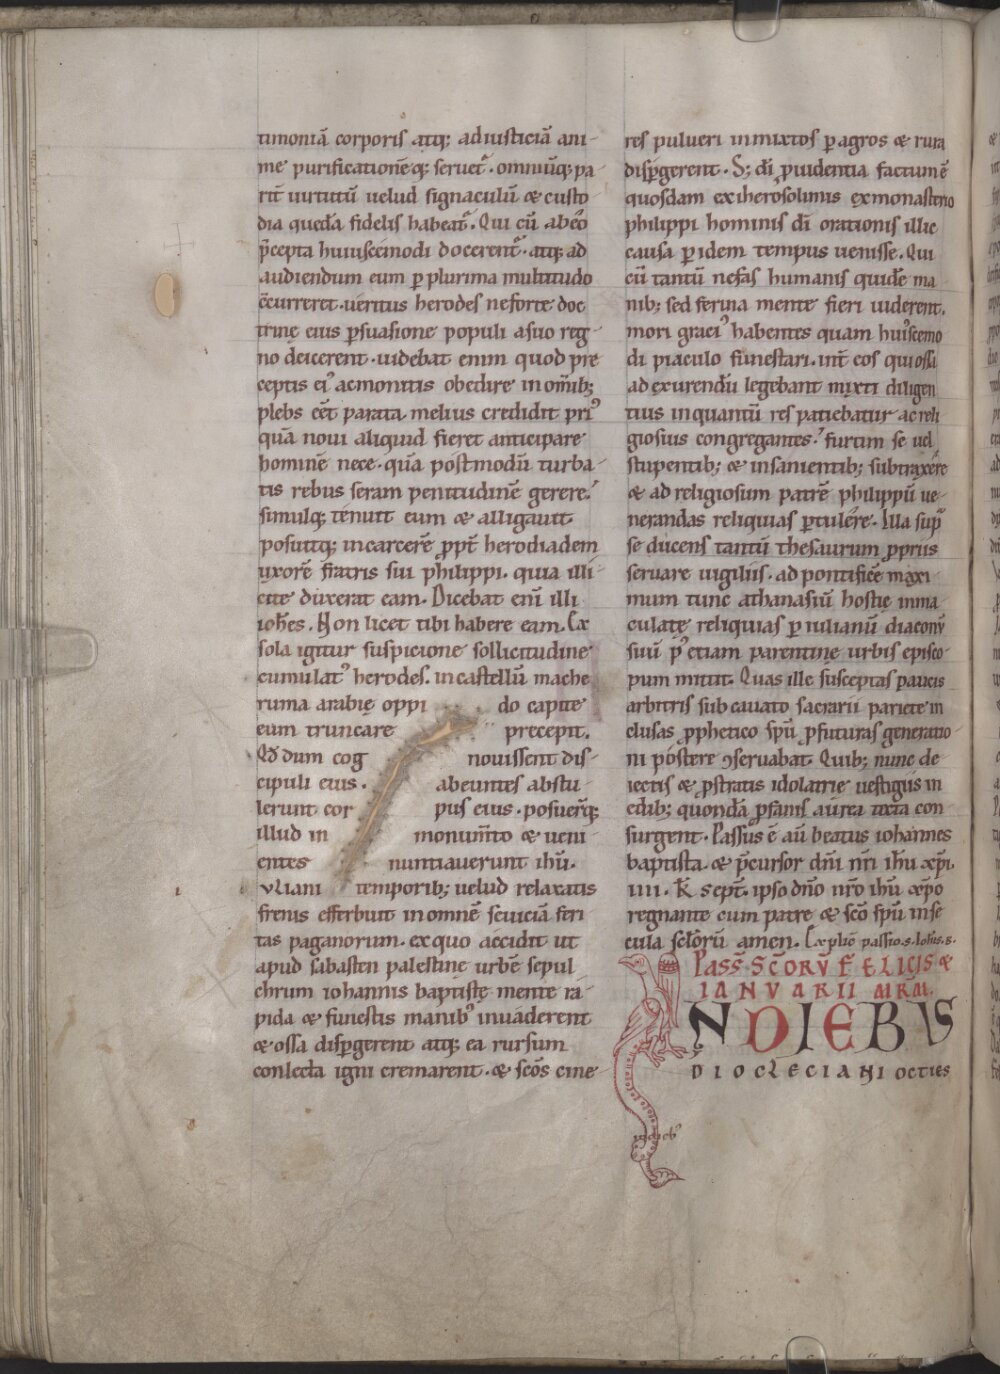 timoniā corporis atq; adiusticiā ani-
me purificationēq; seruet᷑. omniūq; pa
rit̄ uirtutū uelud signaculū & custo
dia quedā fidelis habeat᷑. Qui cū abeo᷑
p̄cepta huiuscemodi docerent᷑. atq; ad
audiendum eum ꝑ plurima multitudo
c̄curreret. ueritus herodes neforte doc
trinę eius ꝑsuasione populi asuo reg-
no deicerent. uidebat enim quod pre
ceptis ei᾿ acmonitis obedire inom̄ib;
plebs eēt parata. melius credidit pri᾿
quā noui aliquid fieret anticipare
hominē nece. quā postmodū turba-
tis rebus seram penitudinē gerere.
simulq; tenuit eum & alligauit.
posuitq; incarcerē ꝓpt̄ herodiadem
uxorē fratris sui philippi. quia illi
cite duxerat eam. Dicebat enī illi
ioh̄es. Non licet tibi habere eam. Ex
sola igitur suspicione sollicitudine
cumulat᾿ herodes. incastellū mache
ruma arabię oppi do capite
eum truncare precepit.
Qd̄ dum cog nouissent dis-
cipuli eius. abeuntes abstu-
lerunt cor pus eius. posuer̄q;
illud in monum̄to & ueni
entes nuntiauerunt ihū.
vliani temporib; uelud relaxatis
frenis efferbuit inomnē seuiciā feri
tas paganorum. exquo accidit ut
apud sabasten palestinę urbē sepul
chrum iohannis baptistę mente ra-
pida & funestis manib᾿ inuaderent
& ossa disꝑgerent atq; ea rursum
conlecta igni cremarent. & scōs cine
res pulueri inmixtos ꝑ agros & rura
disꝑgerent. S; dī ꝓuidentia factum ē
quosdam exiherosolimis exmonasterio
philippi hominis dī orationis illic
causa ꝑ idem tempus uenisse. Qui
cū tantū nefas humanis quidē ma
nib; sed ferina mente fieri uiderent.
mori graci᾿ habentes quam hui᾿scemo
di piaculo funestari. int̄ eos qui ossa
ad exurendū legebant mixti diligen
tius inquantū res patiebatur ac reli
giosius congregantes. furtim se uel
stupentib; & insanientib; subtraxēre
& ad religiosum patrē philippū ue-
nerandas reliquias ꝑtulēre. Illa sup᷑
se ducens tantū thesaurum ꝓpriis
seruare uigiliis. ad pontificē maxi-
mum tunc athanasiū hostię inma
culatę reliquias ꝑ iulianū diaconū
suū p᾿ etiam parentinę urbis episco-
pum mittit. Quas ille susceptas paucis
arbitris sub cauato sacrarii pariete in
clusas ꝓphetico spū ꝓfuturas generatio-
ni postere ꝯseruabat. Quib; nunc de
iectis & ꝓstratis idolatrię uestigiis in
edib; quondā ꝓfanis aurea tecta con
surgent. Passus ē aū beatus iohannes
baptista. & p̄cursor dn̄i nr̄i ihū xp̄i.
IIII. K̄ sept̄. ipso dn̄o nr̄o ihū xp̄o
regnante cum patre & scō spū inse
cula sclorū amen. Explic̄ passio. s. Ioh̄is. B.
Pass̄. SCORV̄ FELICIS &
IANVARII MR̄M.
N DIEBVS
DIOCLECIANI OCTIES
indieb᾿